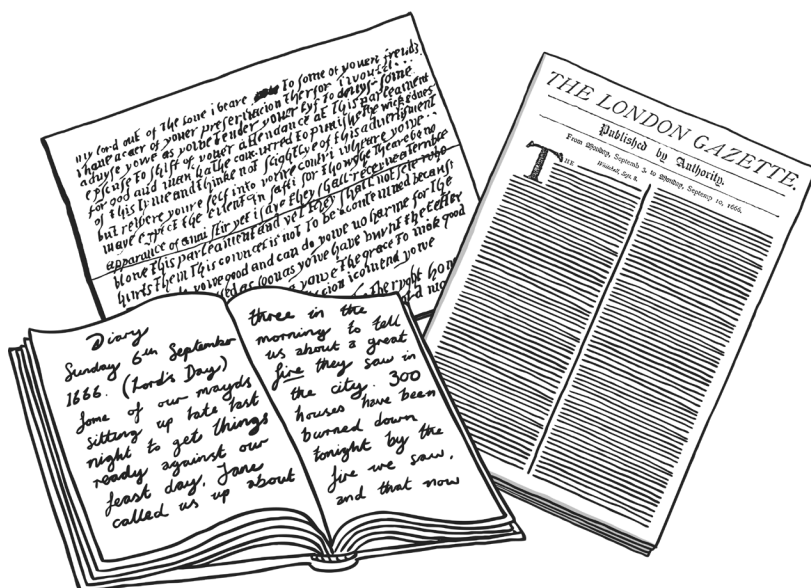 my lord out of the love i beare To some of youer frends
i have a caer of youer preservacion Therfor i would
advyse yowe as yowe tender youer lyf to devys some
excuse to shift of youer attendance at This parleament
for god and man hathe concurred to punishe The wickednes
of this tyme and thinke not slightlye of this advertisment
but retiere youre self into youre contri wheare yowe
maye expect the event in safti for thowghe Theare be no
apparance of anni stir yet i saye they shall receyve a terrible
blowe This parleament and yet they shall not seie who
hurts Them This councel is not To be acontemned becaus
yowe good and can do yowe no harme for the
as soon as yowe have burnt the letter
yowe The grace to mak good
i comend yowe
The right hono
Diary
Sunday 6th September
1666. (Lord's Day)
Some of our mayds
sitting up late last
night to get things
ready against our
feast day, Jane
called us up about
three in the
morning to tell
us about a great
fire they saw in
the city. 300
houses have been
burned down
tonight by the
fire we saw,
and that now
THE LONDON GAZETTE.
Published by Authority.
From Monday, Septemb 3, to Monday, Septemp 10, 1666.
Whitehall, Sept. 8.
THE